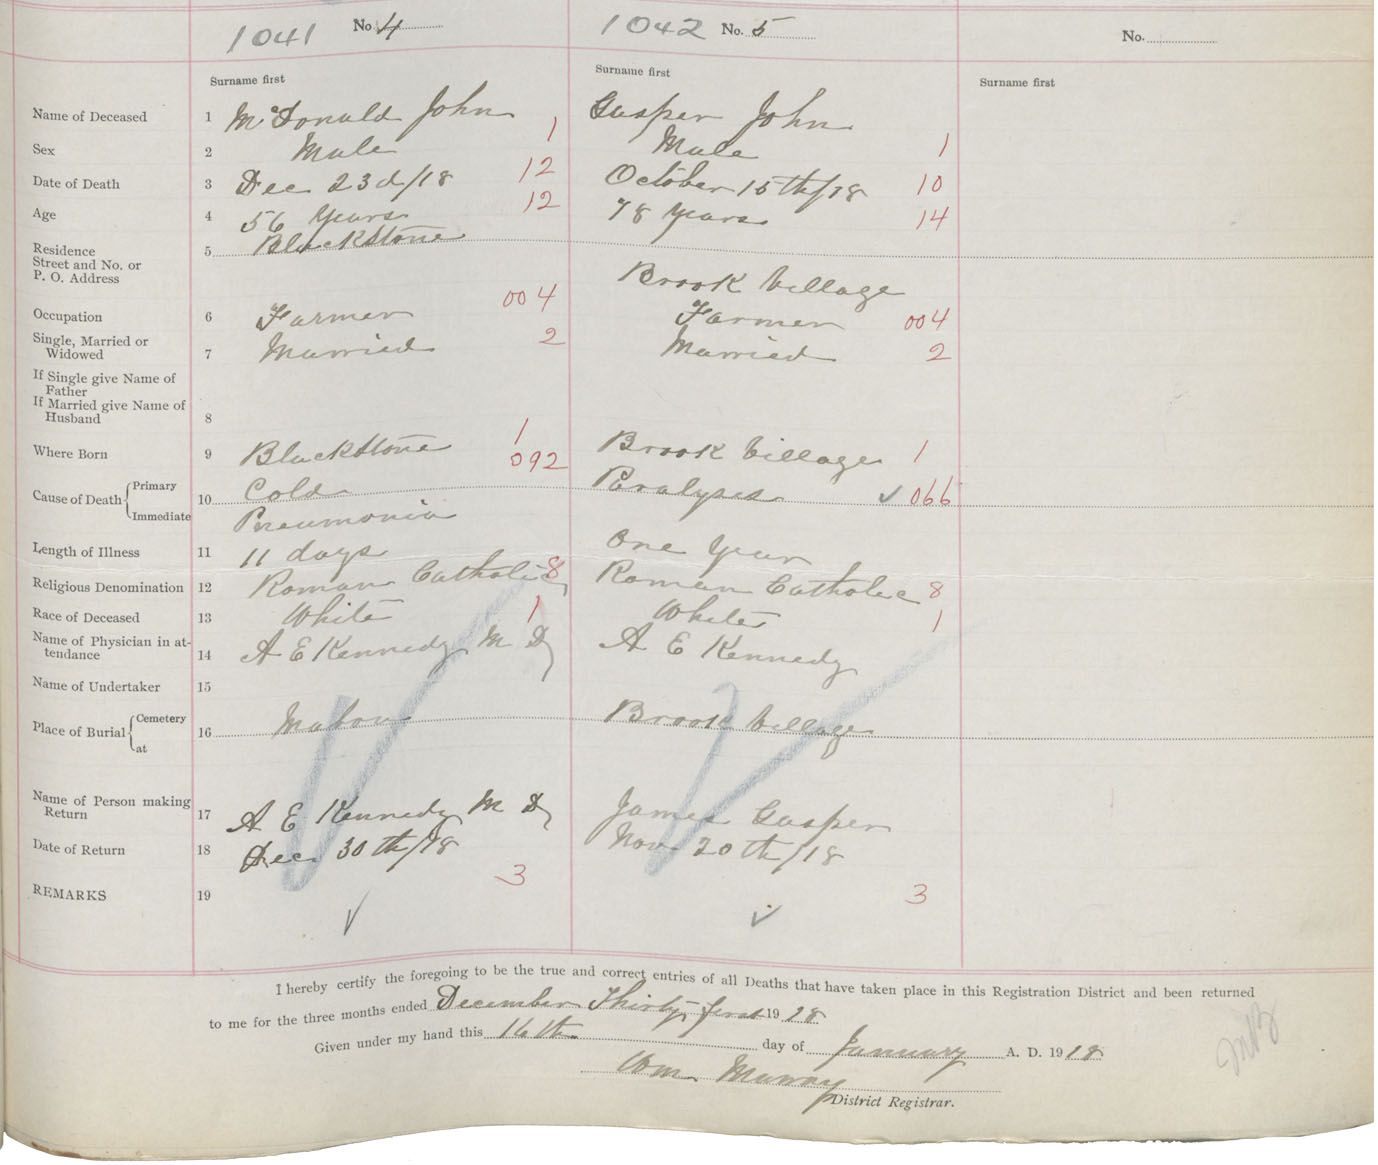 1041 No. 4 1042 No. 5 No.
Surname first Surname first Surname first
Name of Deceased 1 McDonald John Gasper John
Sex 2 Male 1 Male 1
Date of Death 3 Dec 23d/18 12 October 15th/18 10
Age 4 56 Years 12 78 Years 14
Residence
Street and No. or
P. O. Address 5 Blackstone Brook Village
Occupation 6 Farmer 004 Farmer 004
Single, Married or
Widowed 7 Married 2 Married 2
If Single give Name of
Father
If Married give Name of
Husband 8
Where Born 9 Blackstone 1 Brook Village 1
Cause of Death { Primary 10 Cold 092 Paralyses ✓ 066
Immediate Pneumonia
Length of Illness 11 11 days One Year
Religious Denomination 12 Roman Catholic 8 Roman Catholic 8
Race of Deceased 13 White 1 White 1
Name of Physician in at-
tendance 14 A E Kennedy M D A E Kennedy
Name of Undertaker 15
Place of Burial { Cemetery 16 Mabou Brook Village
at
Name of Person making
Return 17 A E Kennedy M D James Gasper
Date of Return 18 Dec 30th/18 Nov 20th/18
REMARKS 19 3 3
I hereby certify the foregoing to be the true and correct entries of all Deaths that have taken place in this Registration District and been returned
to me for the three months ended December Thirty first 19 18
Given under my hand this 16th day of January A. D. 19 18
Wm Murray
District Registrar.